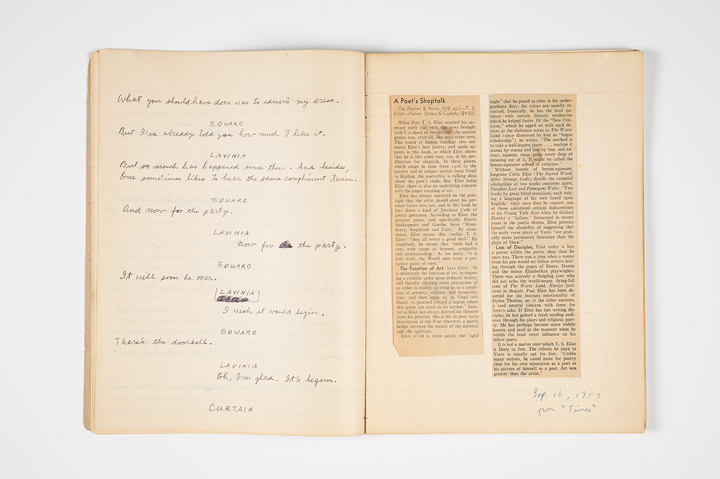 What you should have done was to admire my dress.
EDWARD
But I've already told you how much I like it.
LAVINIA
But so much has happened since then. And besides,
One sometimes likes to hear the same compliment twice.
EDWARD
And now for the party.
LAVINIA
Now for the party.
EDWARD
It will soon be over.
LAVINIA
I wish it would begin.
EDWARD
There's the doorbell.
LAVINIA
Oh, I'm glad. It's begun.
CURTAIN
A Poet's Shoptalk
On Poetry & Poets (308 pp.)—T. S.
Eliot—Farrar, Straus & Cudahy ($4.50).
When Poet T. S. Eliot married his sec-
retary early this year, the news brought
with it a shock of recognition: the austere
poems was, after all, like most other men.
This touch of human bondage also ani-
mates Eliot's best poetry, and again ap-
pears in this book, in which Eliot shows
that he is the other man, too, in his pre-
dilection for shoptalk. In these pieces,
which range in time from 1926 to the
present and in subject matter from Virgil
to Kipling, the poet-critic is talking shop
about the poet's trade. But, Eliot being
Eliot, there is also an underlying concern
with the larger meaning of art.
Eliot has always operated on the prin-
ciple that the critic should erect his per-
sonal tastes into law, and in this book he
lays down a kind of Justinian Code of
poetic greatness. According to Eliot, the
greatest poets, and specifically Dante,
Shakespeare and Goethe, have "Abun-
dance, Amplitude and Unity." By abun-
dance, Eliot means this
"they all wrote a good deal." By
amplitude, he means that "each had a
very wide range of interest, sympathy
and understanding." As for unity, "it is
Life itself, the World seen from a par-
ticular point of view."
The Function of Art. Says Eliot: "It
is ultimately the function of art, in impos-
ing a credible order upon ordinary reality,
and thereby eliciting some perception of
an order in reality, to bring us to a condi-
tion of serenity, stillness, and reconcilia-
tion; and then leave us, as Virgil left
Dante, to proceed toward a region where
that guide can avail us no farther." Inso-
far as Eliot has always derived his theories
from his practice, this is his on poet taste
description of the Four Quartets, a poetic
bridge between the realms of the material
and the spiritual.
Eliot at 68 is more nearly the "aged
eagle" that he posed as even in his under-
graduate days; his talons are usually re-
tracted. Ironically, he has the least pa-
tience with certain literary tendencies
which he helped foster. Of the "New Crit-
icism," which he egged on with such de-
vices as the elaborate notes to The Waste
Land (since dismissed by him as "bogus
scholarship"), he writes: "The method is
to take a well-known poem . . . analyse it
stanza by stanza and line by line, and ex-
tract, squeeze, tease, press every drop of
meaning out of it. It might be called the
lemon-squeezer school of criticism."
Without benefit of lemon-squeezer,
longtime Critic Eliot (The Sacred Wood,
After Strange Gods) distills the essential
similarities of two works centuries apart,
Paradise Lost and Finnegans Wake: "Two
books by great blind musicians, each writ-
ing a language of his own based upon
English." Only once does he commit one
of those calculated critical indiscretions
of his Young Turk days when he dubbed
Hamlet a "failure." Immersed in recent
years in the poetic drama, Eliot permits
himself the absurdity of suggesting that
the early verse plays of Yeats "are prob-
ably more permanent literature than the
plays of Shaw."
Loss of Disciples. Eliot today is less
a power within the poetic shop than he
once was. There was a time when a rumor
from his pen would set fellow writers leaf-
ing through the pages of Dante, Donne
and the minor Elizabethan playwrights.
There was scarcely a fledgling poet who
did not echo the world-weary, dying-fall
tone of The Waste Land. Always lyric
even in despair, Poet Eliot has been de-
serted for the bravura emotionality of
Dylan Thomas, or at the other extreme,
a cool neutral concern with form for
form's sake. If Eliot has lost writing dis-
ciples, he has gained a fresh reading audi-
ence through his plays and religious poet-
ry. He has perhaps become more widely
known and read at the moment when he
wields the least overt influence on his
fellow poets.
It is not a matter over which T. S. Eliot
is likely to fret. The tribute he pays to
Yeats is equally apt for him: "Unlike
many writers, he cared more for poetry
than for his own reputation as a poet or
his picture of himself as a poet. Art was
greater than the artist."
Sep. 16, 1957
from "Times"